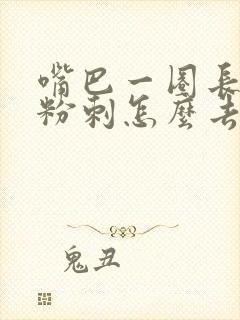 嘴巴一圈長
粉刺怎麼去
鬼丑